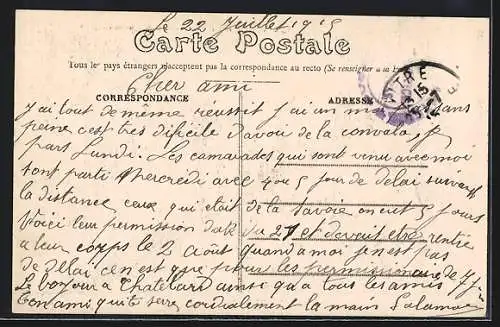 le 22 Juillet 1915
Carte Postale
Tous les pays étrangers n'acceptent pas la correspondance au recto (Se renseigner à la
Cher ami
CORRESPONDANCE ADRESSE
J'ai tout de même réussit j'ai un mois sans
peine c'est très dificile d'avoir de la convalo, je
pars Lundi. Les camarades qui sont venu avec moi
sont parti Mercredi avec 4 ou 5 jour de delai suivant
la distance ceux qui était de la Savoie on eut 5 jours
Voici leur permission date du 27 et doivent etre rentre
a leur corps le 2 août quand a moi je n'est pas
de délai ce n'est que pour les permissionnaire de 7 jr
Le bonjour à Chatelard ainsi qu'a tous les amis
Ton ami qui te serre cordialement la main